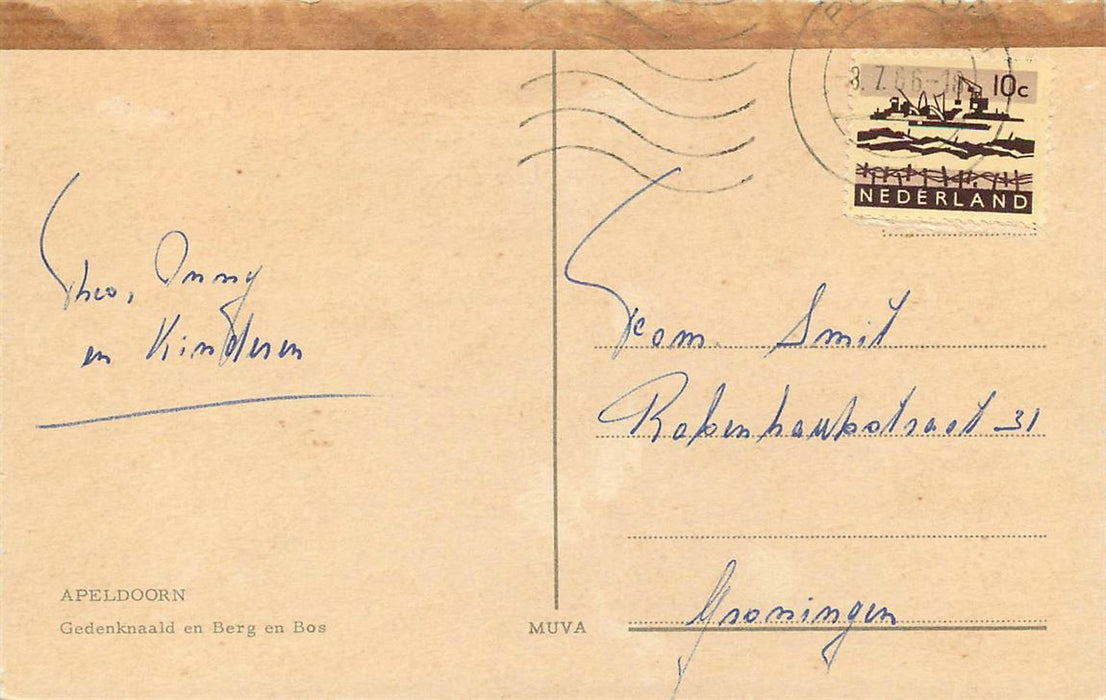 Theo, Onny
en Kinderen
APELDOORN
Gedenknaald en Berg en Bos
MUVA
-3.7.66-18
10c
NEDERLAND
Fam. Smit
Rabenhauptstraat 31
Groningen